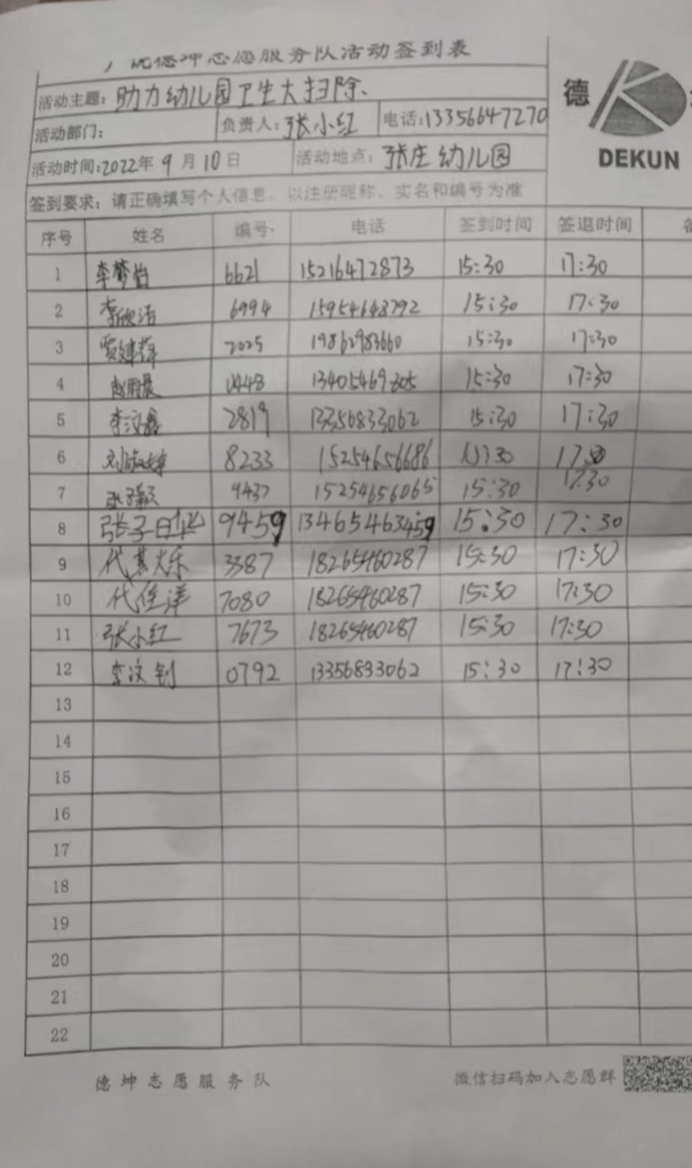 德坤志愿服务队活动签到表
德
DEKUN
活动主题: 助力幼儿园卫生大扫除、
活动部门: 负责人: 张小红 电话: 13356647270
活动时间: 2022年 9 月 10 日 活动地点: 张庄幼儿园
签到要求: 请正确填写个人信息, 以注册昵称、实名和编号为准
序号 姓名 编号 电话 签到时间 签退时间
1 李梦怡 6621 15216472873 15:30 17:30
2 李欣洁 6994 15954648792 15:30 17:30
3 2025 19862983660 15:30 17:30
4 赵雨晨 15:30 17:30
5 李汶鑫 2819 13356833062 15:30 17:30
6 8233 15254656686 17:30
7 9437 15254656065 15:30 17:30
8 9459 13465463459 15:30 17:30
9 3387 18265460287 15:30 17:30
10 代佳洋 7080 18265460287 15:30 17:30
11 张小红 7673 18265460287 15:30 17:30
12 李汶钊 0792 13356833062 15:30 17:30
13
14
15
16
17
18
19
20
21
22
德坤志愿服务队 微信扫码加入志愿群